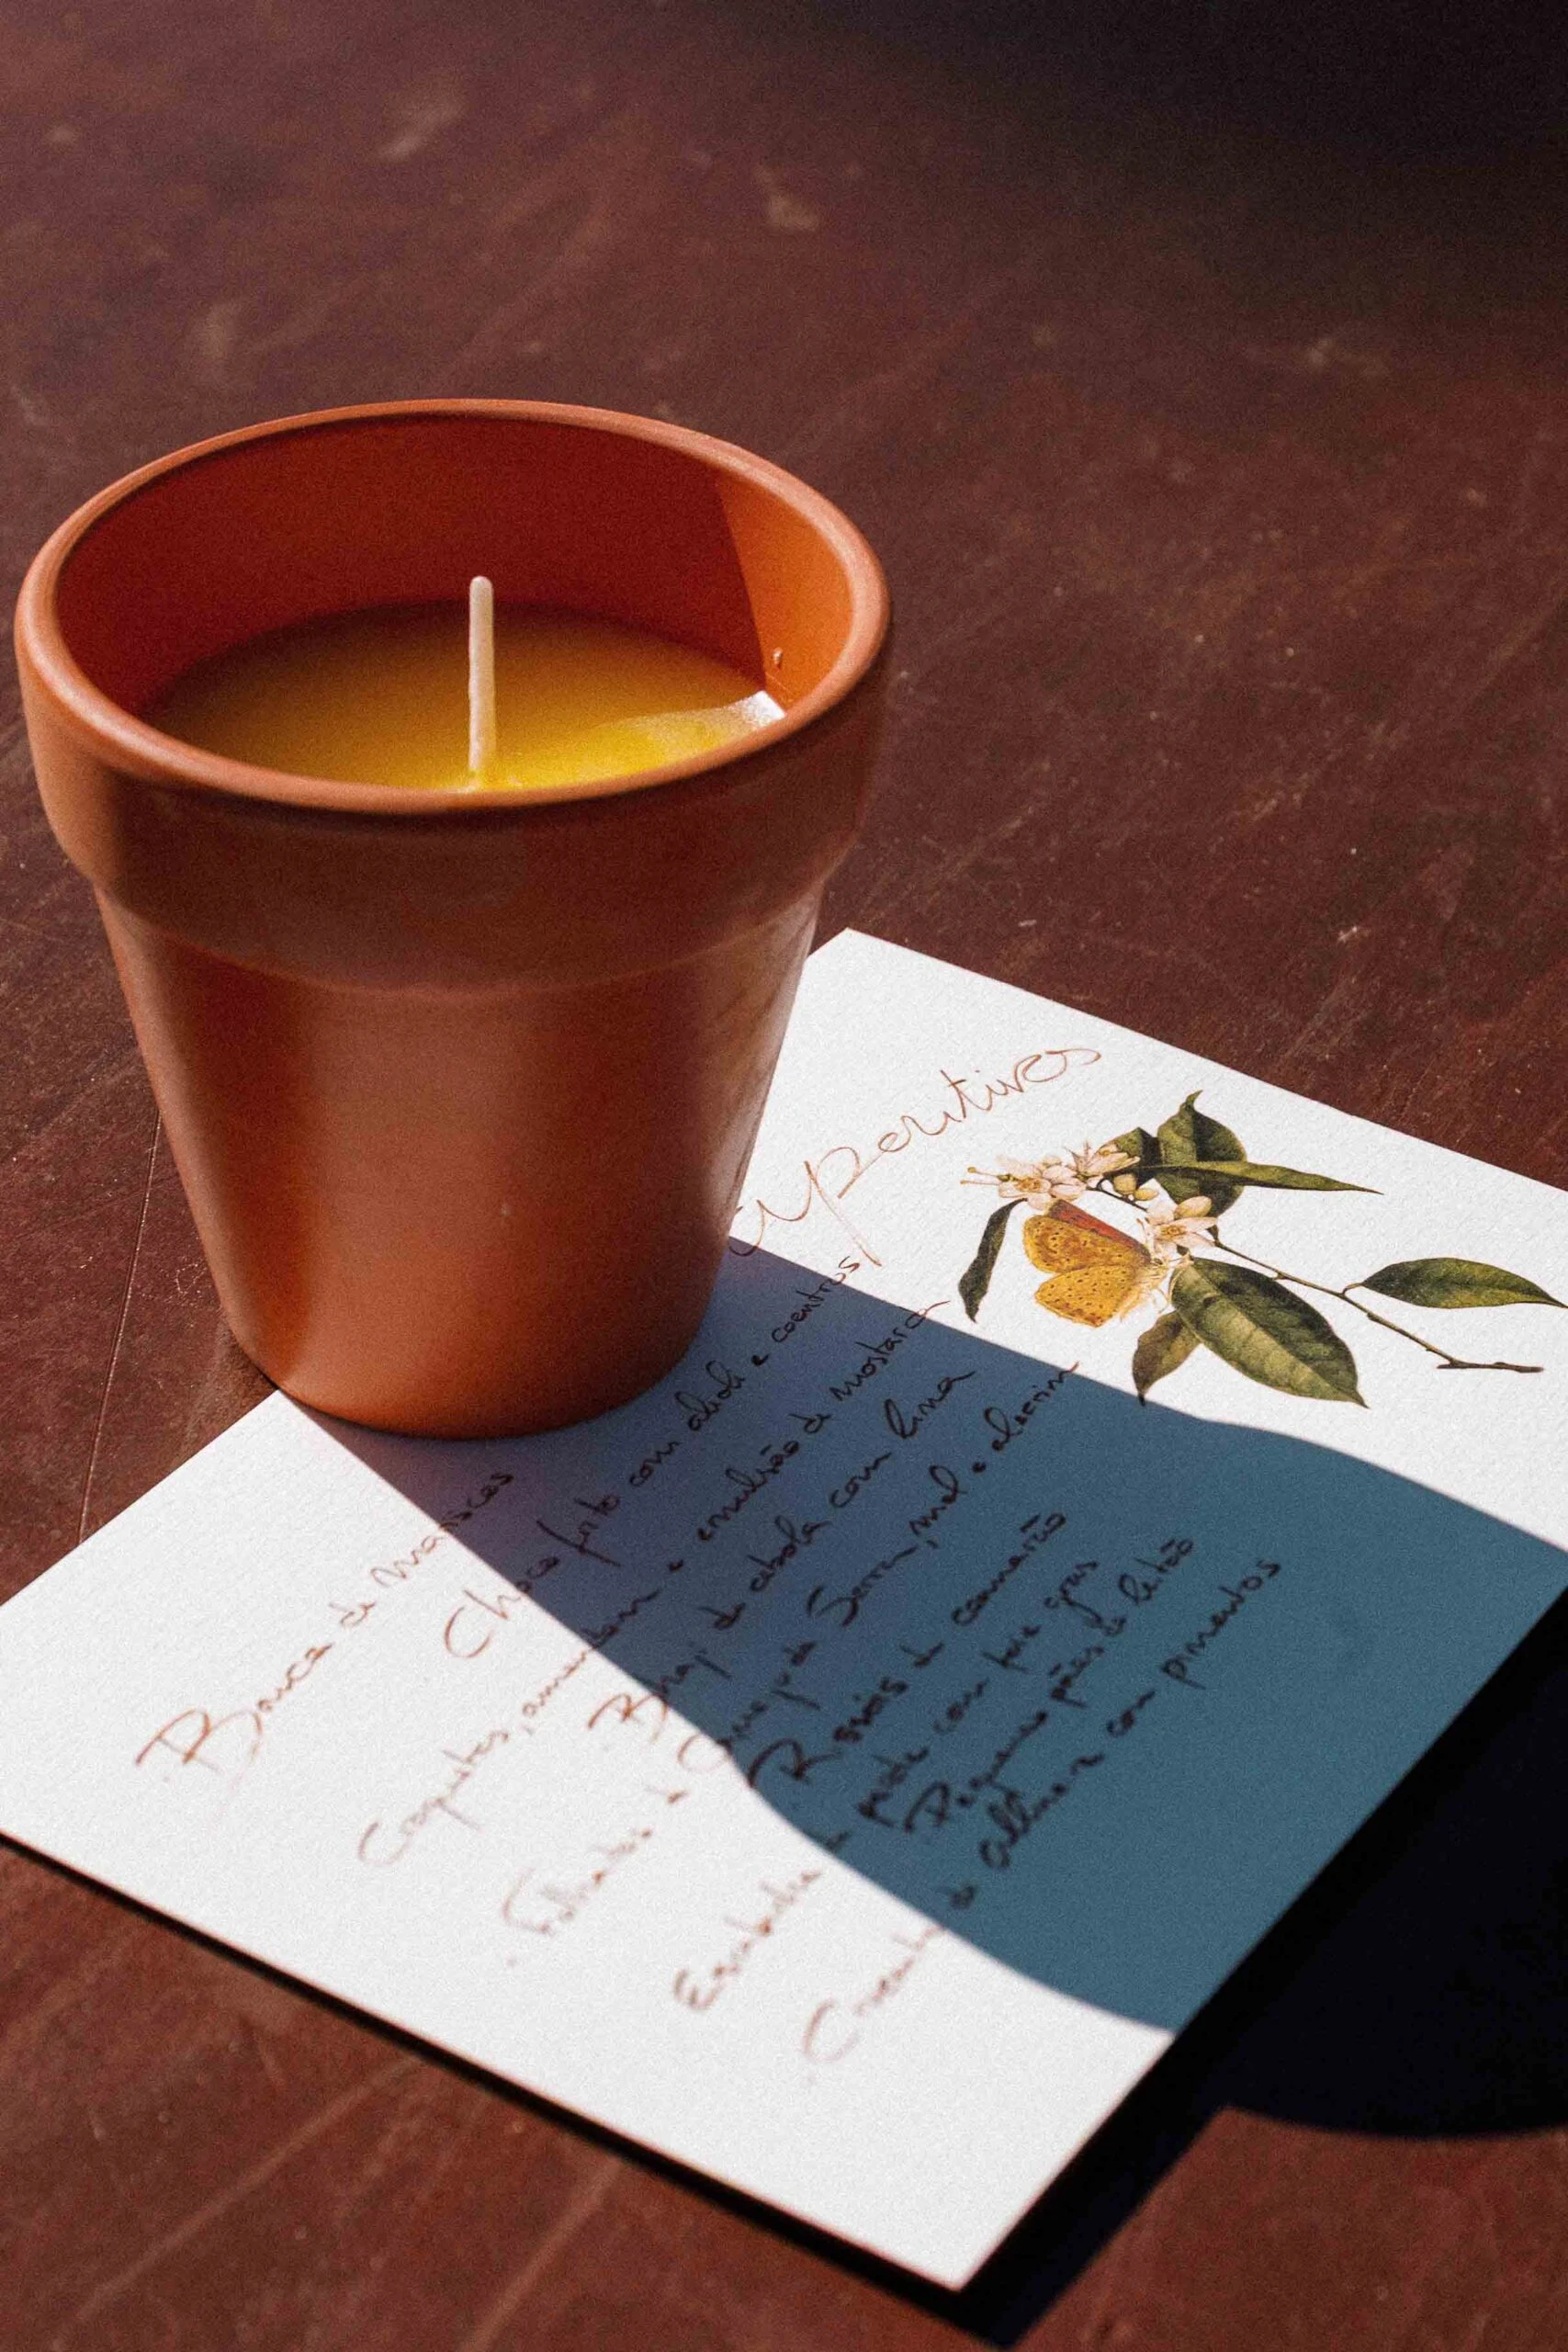 Aperitivos
Banca de Mariscos
Choco frito com alioli e coentros
Croquetes, amendoim e emulsão de mostarda
Bhaji de cebola com lima
Folhados de Queijo da Serra, mel e alecrim
Rissóis de camarão
de peixe com foie gras
Pequenos pães de leitão
Crocante de alheira com pimentos